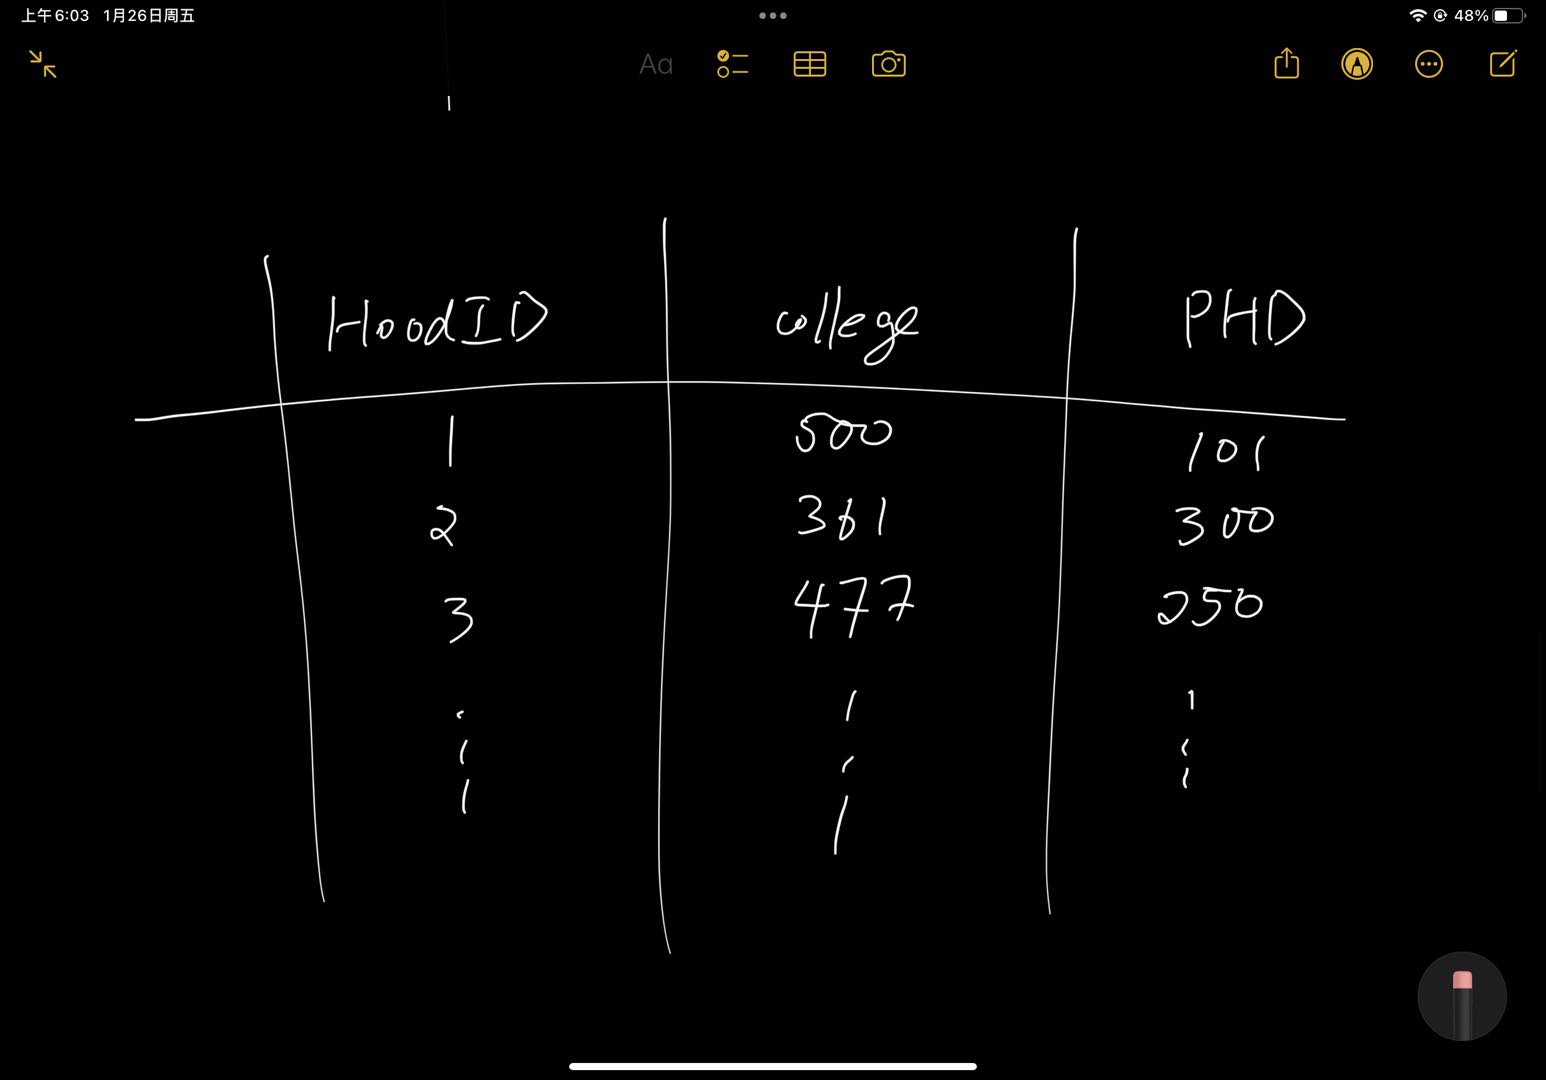 上午6:03 1月26日周五 48%
Aa
HoodID college PHD
1 500 101
2 361 300
3 477 250